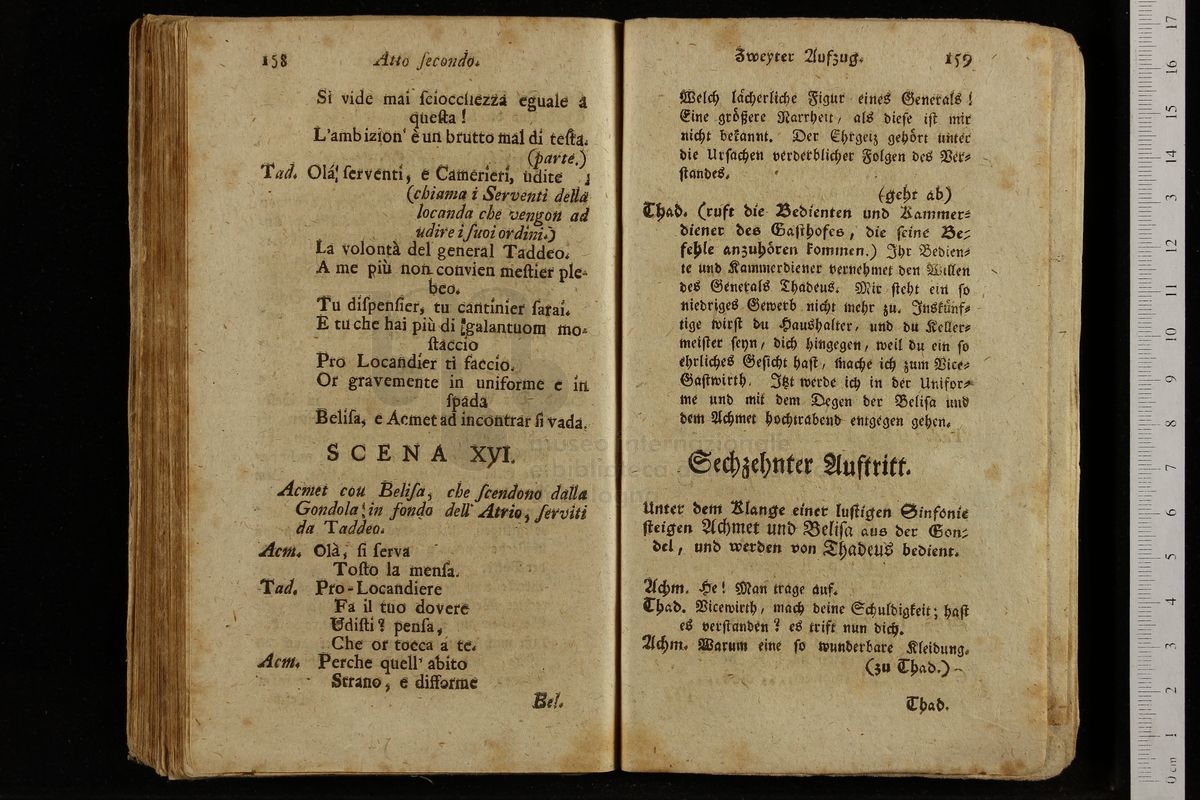 158 Atto ſecondo.
Si vide mai ſciocchezza eguale a
queſta!
L'ambizion' è un brutto mal di teſta.
(parte.)
Tad. Olá! ſerventi, e Camerieri, udite
(chiama i Serventi della
locanda che vengon ad
udire i ſuoi ordini.)
La volontà del general Taddeo.
A me più non convien meſtier ple-
beo.
Tu diſpenſier, tu cantinier ſarai.
E tu che hai più di galantuom mo-
ſtaccio
Pro Locandier ti faccio.
Or gravemente in uniforme e in
ſpada
Beliſa, e Acmet ad incontrar ſi vada.
SCENA XVI.
Acmet cou Beliſa, che ſcendono dalla
Gondola in fondo dell' Atrio, ſerviti
da Taddeo.
Acm. Olà, ſi ſerva
Toſto la menſa.
Tad. Pro-Locandiere
Fa il tuo dovere
Udiſti? penſa,
Che or tocca a te.
Acm. Perche quell' abito
Strano, e difforme
Bel.
Zweyter Aufzug. 159
Welch lächerliche Figur eines Generals!
Eine größere Narrheit, als dieſe iſt mir
nicht bekannt. Der Ehrgeiz gehört unter
die Urſachen verderblicher Folgen des Ver-
ſtandes.
(geht ab)
Thad. (ruft die Bedienten und Kammer-
diener des Gaſthofes, die ſeine Be-
fehle anzuhören kommen.) Ihr Bedien-
te und Kammerdiener vernehmet den Willen
des Generals Thadeus. Mir ſteht ein ſo
niedriges Gewerb nicht mehr zu. Inskünf-
tige wirſt du Haushalter, und du Keller-
meiſter ſeyn, dich hingegen, weil du ein ſo
ehrliches Geſicht haſt, mache ich zum Vice-
Gaſtwirth. Itzt werde ich in der Unifor-
me und mit dem Degen der Beliſa und
dem Achmet hochtrabend entgegen gehen.
Sechzehnter Auftritt.
Unter dem Klange einer luſtigen Sinfonie
ſteigen Achmet und Beliſa aus der Gon-
del, und werden von Thadeus bedient.
Achm. He! Man trage auf.
Thad. Vicewirth, mach deine Schuldigkeit; haſt
es verſtanden? es trift nun dich.
Achm. Warum eine ſo wunderbare Kleidung.
(zu Thad.)
Thad.
museo internazionale
e biblioteca